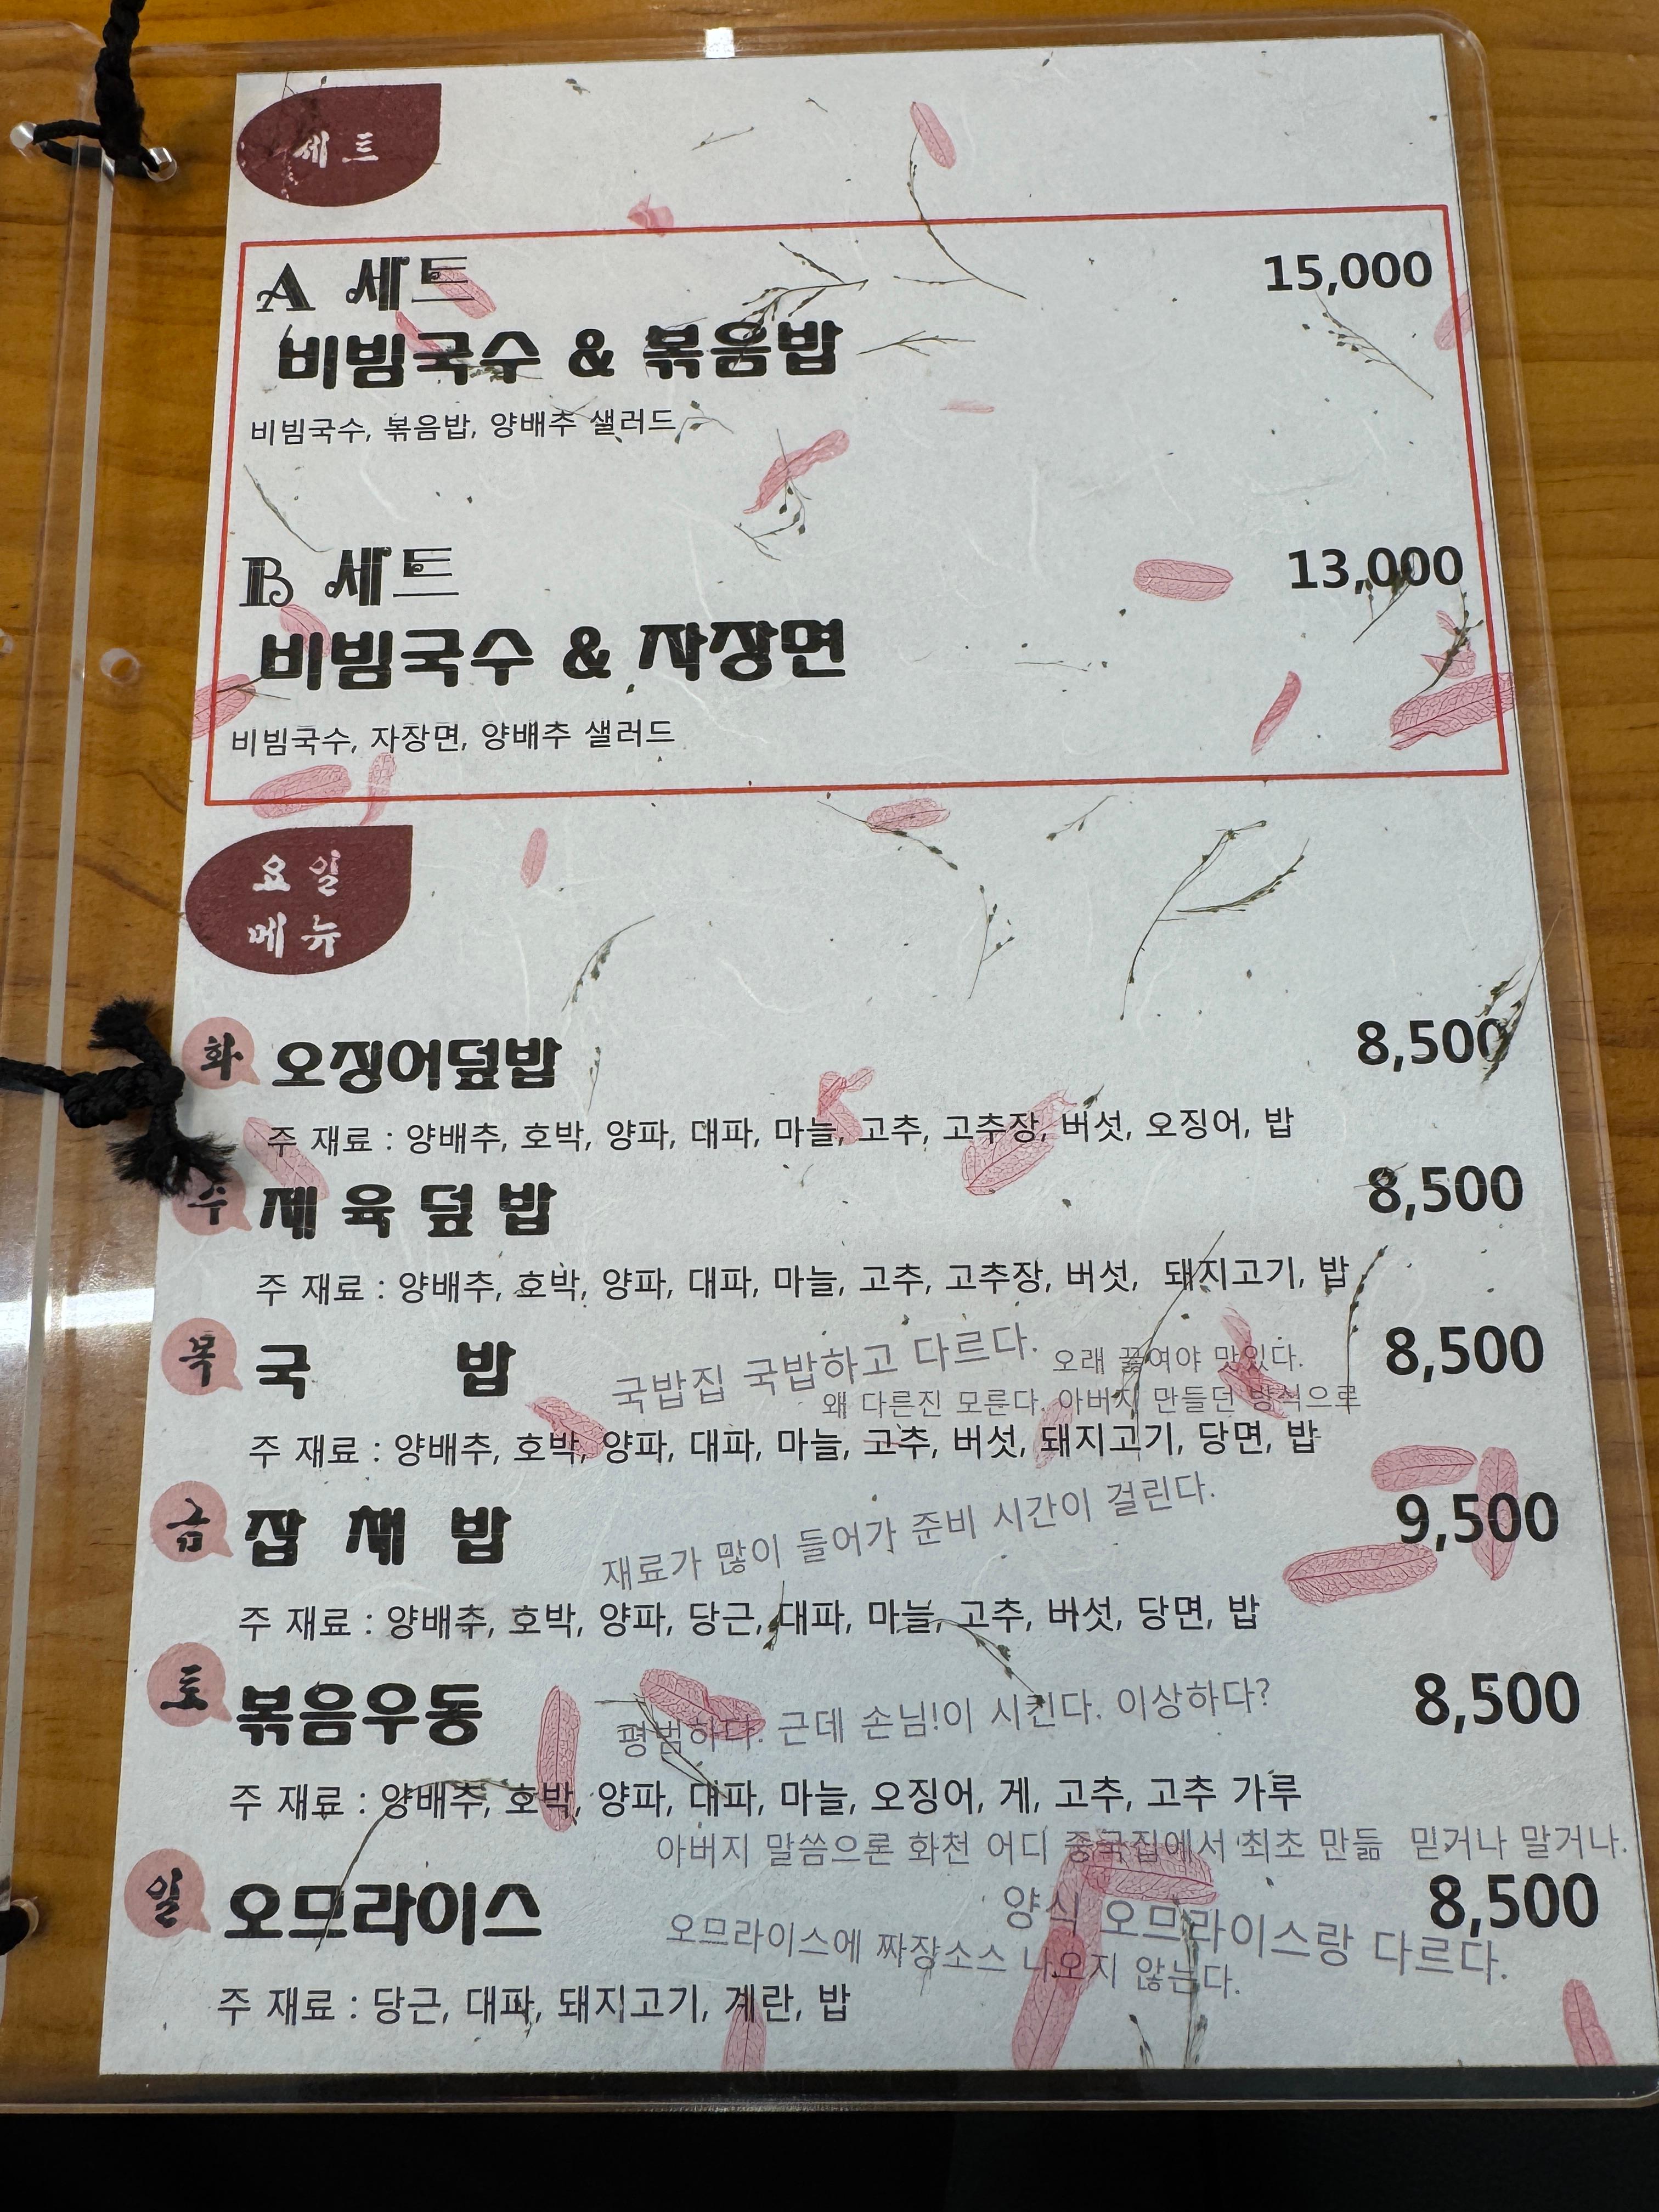 세트
A 세트 15,000
비빔국수 & 볶음밥
비빔국수, 볶음밥, 양배추 샐러드
B 세트 13,000
비빔국수 & 자장면
비빔국수, 자장면, 양배추 샐러드
요일
메뉴
화 오징어덮밥 8,500
주 재료 : 양배추, 호박, 양파, 대파, 마늘, 고추, 고추장, 버섯, 오징어, 밥
수 제육덮밥 8,500
주 재료 : 양배추, 호박, 양파, 대파, 마늘, 고추, 고추장, 버섯, 돼지고기, 밥
목 국 밥 8,500
국밥집 국밥하고 다르다. 오래 끓여야 맛있다.
왜 다른진 모른다. 아버지 만들던 방식으로
주 재료 : 양배추, 호박, 양파, 대파, 마늘, 고추, 버섯, 돼지고기, 당면, 밥
금 잡 채 밥 9,500
재료가 많이 들어가 준비 시간이 걸린다.
주 재료 : 양배추, 호박, 양파, 당근, 대파, 마늘, 고추, 버섯, 당면, 밥
토 볶음우동 8,500
평범하다. 근데 손님!이 시킨다. 이상하다?
주 재료 : 양배추, 호박, 양파, 대파, 마늘, 오징어, 게, 고추, 고추 가루
아버지 말씀으론 화천 어디 중국집에서 최초 만듦 믿거나 말거나.
일 오므라이스 8,500
양식 오므라이스랑 다르다.
오므라이스에 짜장소스 나오지 않는다.
주 재료 : 당근, 대파, 돼지고기, 계란, 밥